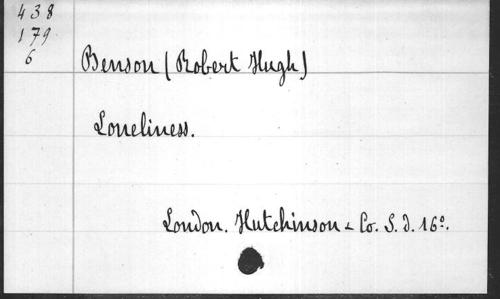 438
179
6
Benson (Robert Hugh)
Loneliness.
London. Hutchinson & Co. S. d. 16°.